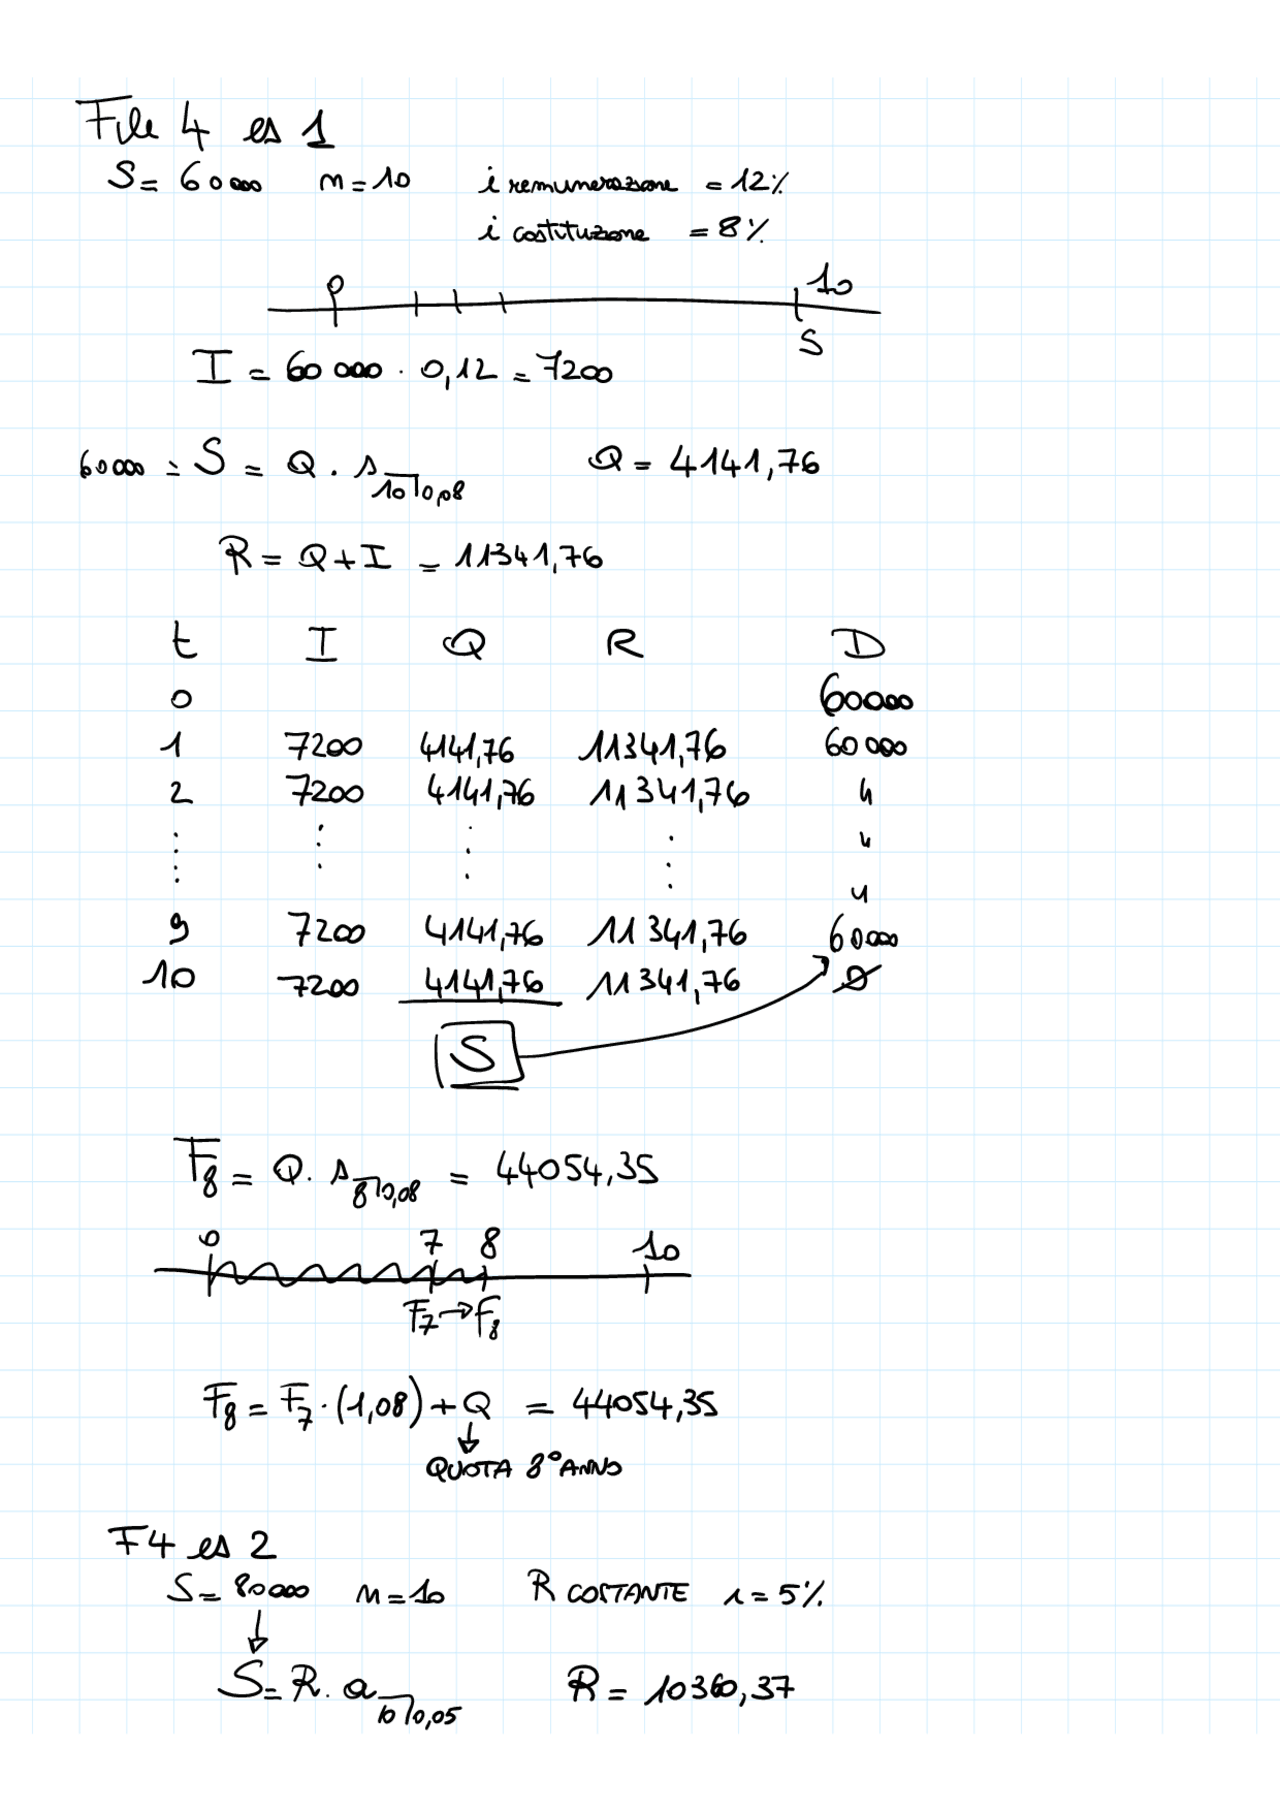 File 4 es 1
S = 60000 n = 10 i remunerazione = 12%
i costituzione = 8%
0 10
S
I = 60 000 · 0,12 = 7200
60000 = S = Q · s 10⌉0,08 Q = 4141,76
R = Q + I = 11341,76
t I Q R D
0 60000
1 7200 4141,76 11341,76 60 000
2 7200 4141,76 11341,76 "
⋮ ⋮ ⋮ ⋮ "
"
9 7200 4141,76 11341,76 60000
10 7200 4141,76 11341,76 0
S
F8 = Q · s 8⌉0,08 = 44054,35
0 7 8 10
F7 → F8
F8 = F7 · (1,08) + Q = 44054,35
↓
QUOTA 8° ANNO
F4 es 2
S = 80000 n = 10 R COSTANTE i = 5%
↓
S = R · a 10⌉0,05 R = 10360,37